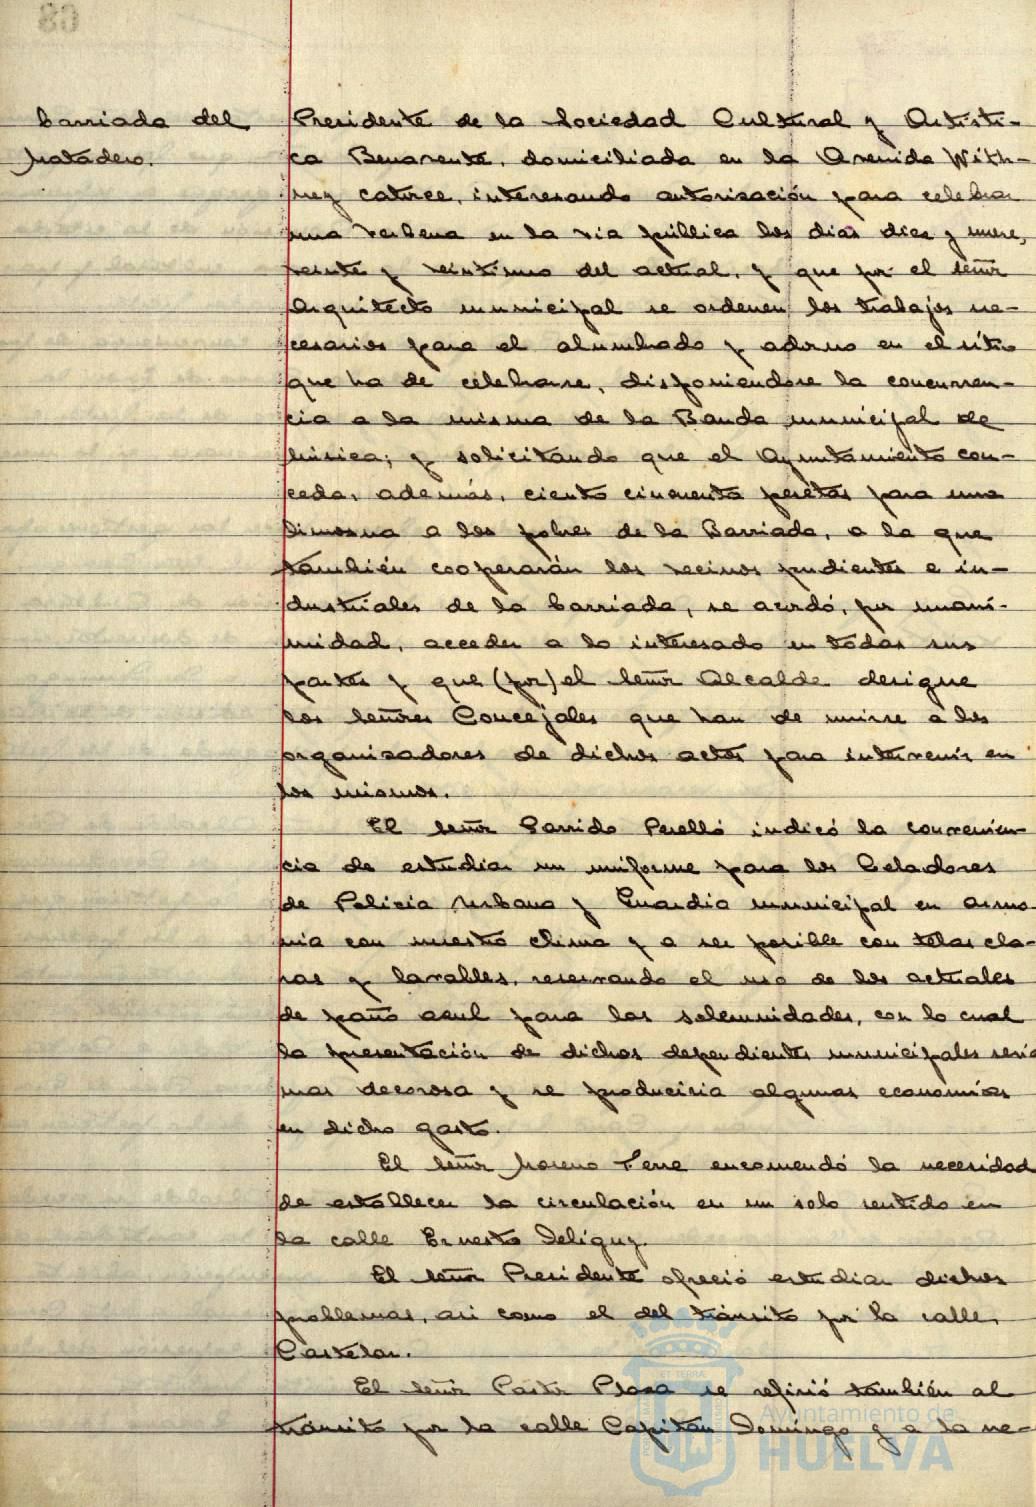 barriada del
Matadero.
Presidente de la Sociedad Cultural y Artísti-
ca Benavente, domiciliada en la Avenida With-
ney catorce, interesando autorización para celebrar
una verbena en la via pública los dias diez y nueve,
veinte y veintiuno del actual, y que por el señor
Arquitecto municipal se ordenen los trabajos ne-
cesarios para el alumbrado y adorno en el sitio
que ha de celebrarse, disponiendose la concurren-
cia a la misma de la Banda municipal de
Música; y solicitando que el Ayuntamiento con-
ceda, además, ciento cincuenta pesetas para una
limosna a los pobres de la Barriada, a la que
también cooperarán los vecinos pudientes e in-
dustriales de la barriada, se acordó, por unani-
midad, acceder a lo interesado en todas sus
partes y que (por) el señor Alcalde designe
los señores Concejales que han de unirse a los
organizadores de dichos actos para intervenir en
los mismos.
El señor Garrido Perelló indicó la convenien-
cia de estudiar un uniforme para los Celadores
de Policia Urbana y Guardia municipal en armo-
nia con nuestro clima y a ser posible con telas cla-
ras y lavables, reservando el uso de los actuales
de paño azul para las solemnidades, con lo cual
la presentación de dichos dependientes municipales seria
mas decorosa y se produciria algunas economias
en dicho gasto.
El señor Moreno encomendó la necesidad
de establecer la circulación en un solo sentido en
la calle Ernesto Deligny.
El señor Presidente ofreció estudiar dichos
problemas, asi como el del tránsito por la calle
Castelar.
El señor Pastor Plaza se refirió también al
tránsito por la calle Capitán Domingo y a la ne-
Ayuntamiento de
HUELVA